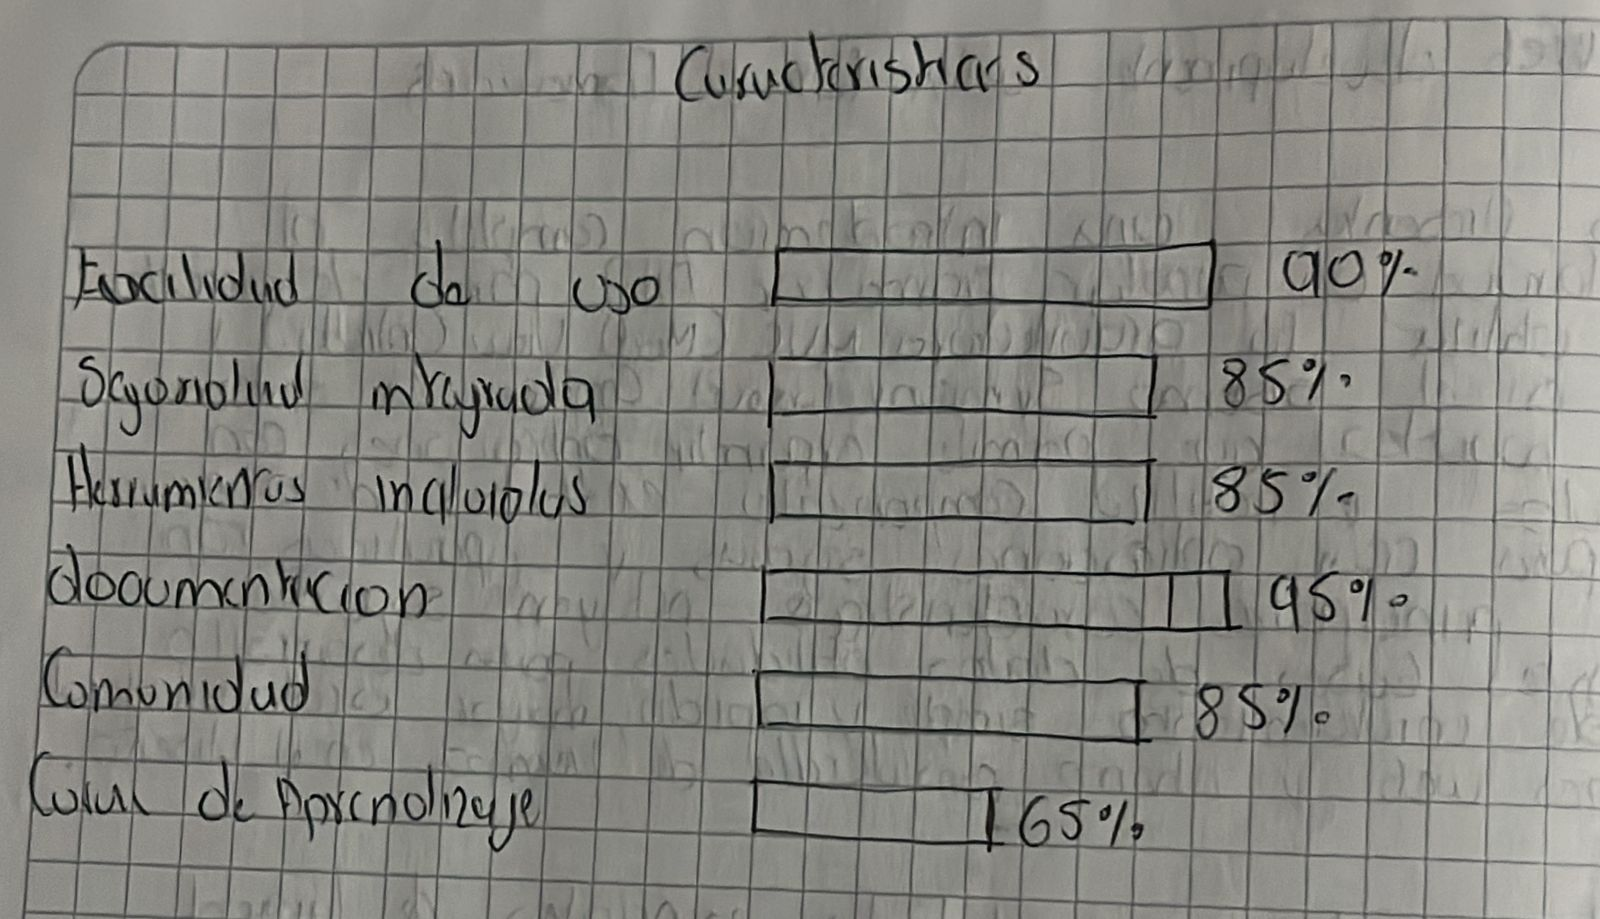 Características
Facilidad de uso 90%
Seguridad integrada 85%
Herramientas incluidas 85%
documentacion 95%
Comunidad 85%
Curva de Aprendizaje 65%